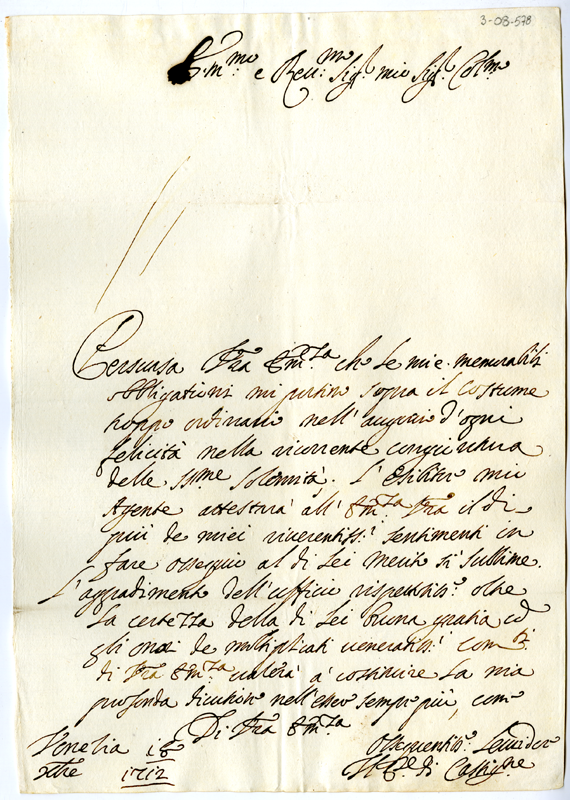 3-08-578
Em.mo e Rev.mo Sig.r mio Sig.r Col.mo
Persuasa V̄ra Em.za che le mie memorabili
obbligationi mi portin sopra il Costume
troppo ordinario nell'augurio d'ogni
felicità nella ricorrente congiuntura
delle SS.me Solennità. L' mio
Agente attesterà all'Em.za V̄ra il di
più de miei riverentiss.i sentimenti in
fare ossequio al di Lei merito sì sublime.
L'aggradimento dell'ufficio rispettitis.o oltre
la certezza della di Lei buona gratia ed
gli de multiplicati veneratiss.i Com.di
di V̄ra Em.za valerà à costituire la mia
profonda divotione nell'esser sempre più, come
Di V̄ra Em.za
Venetia
Xbre 1712
Ossequentiss.o Servidor
di Castigl.ne